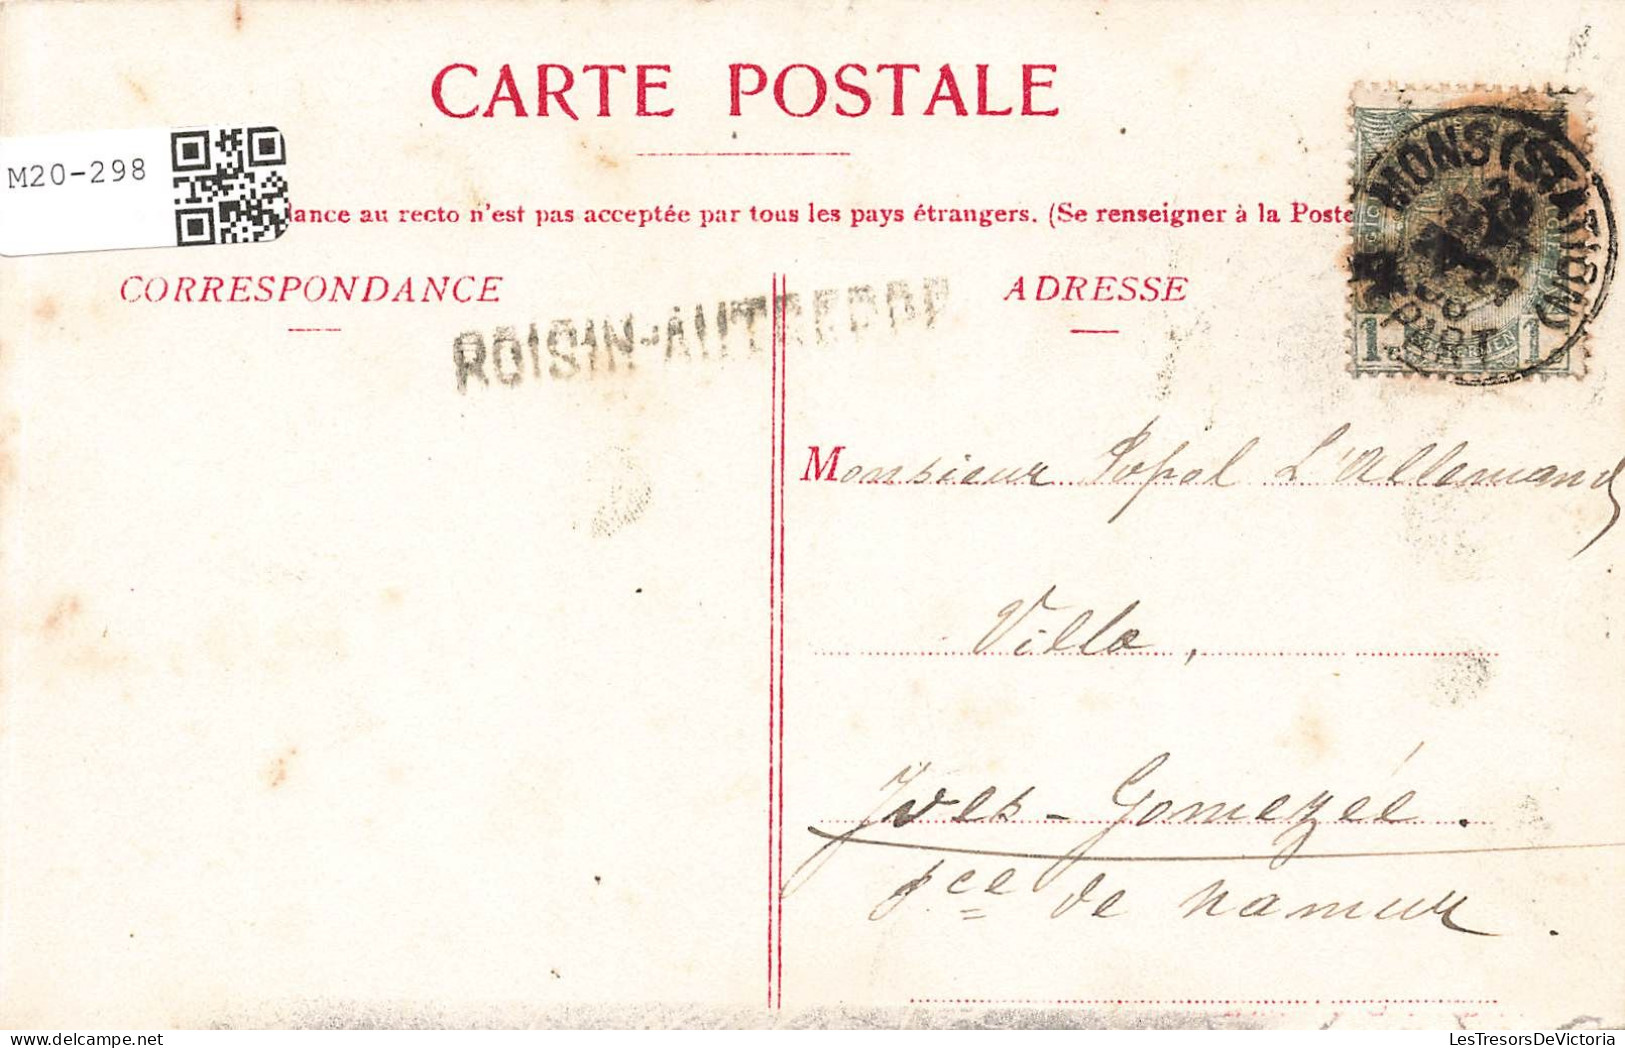 CARTE POSTALE
M20-298
dance au recto n'est pas acceptée par tous les pays étrangers. (Se renseigner à la Poste
CORRESPONDANCE
ADRESSE
ROISIN-AUTREPPE
MONS (STATION)
DEPART
1 1
Monsieur Popol L'Allemand
Villa,
Yves-Gomezée.
Pce de Namur.
LesTresorsDeVictoria